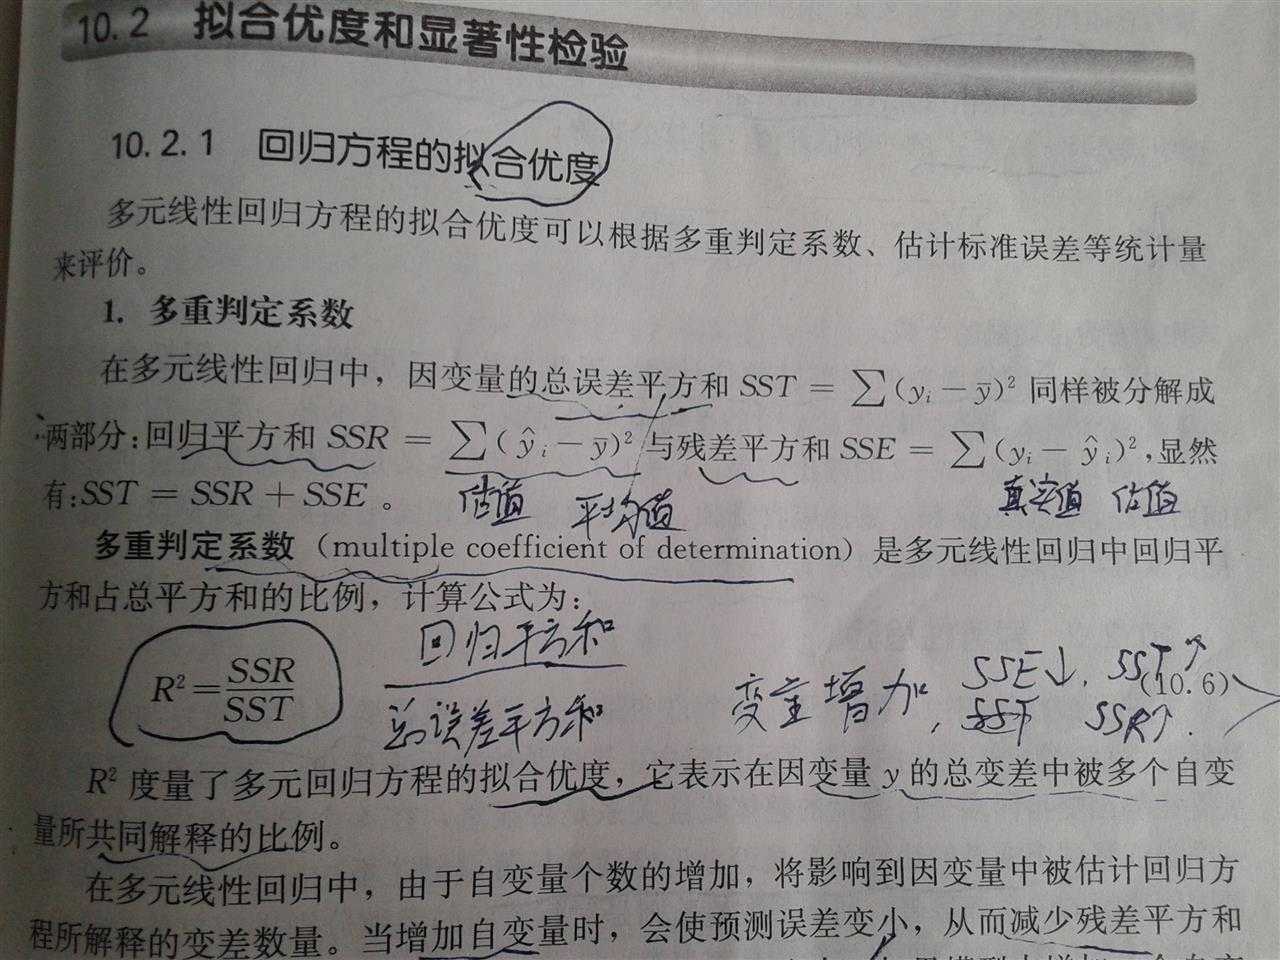 10.2 拟合优度和显著性检验
10.2.1 回归方程的拟合优度
多元线性回归方程的拟合优度可以根据多重判定系数、估计标准误差等统计量
来评价。
1. 多重判定系数
在多元线性回归中，因变量的总误差平方和 SST = ∑(yᵢ − ȳ)² 同样被分解成
两部分:回归平方和 SSR = ∑(ŷᵢ − ȳ)² 与残差平方和 SSE = ∑(yᵢ − ŷᵢ)²,显然
有:SST = SSR + SSE 。
估值 平均值 真实值 估值
多重判定系数（multiple coefficient of determination）是多元线性回归中回归平
方和占总平方和的比例，计算公式为:
回归平方和
R² = SSR/SST
总误差平方和
变量增加, SSE↓. SST↑
SST SSR↑.
(10.6)
R² 度量了多元回归方程的拟合优度，它表示在因变量 y 的总变差中被多个自变
量所共同解释的比例。
在多元线性回归中，由于自变量个数的增加，将影响到因变量中被估计回归方
程所解释的变差数量。当增加自变量时，会使预测误差变小，从而减少残差平方和